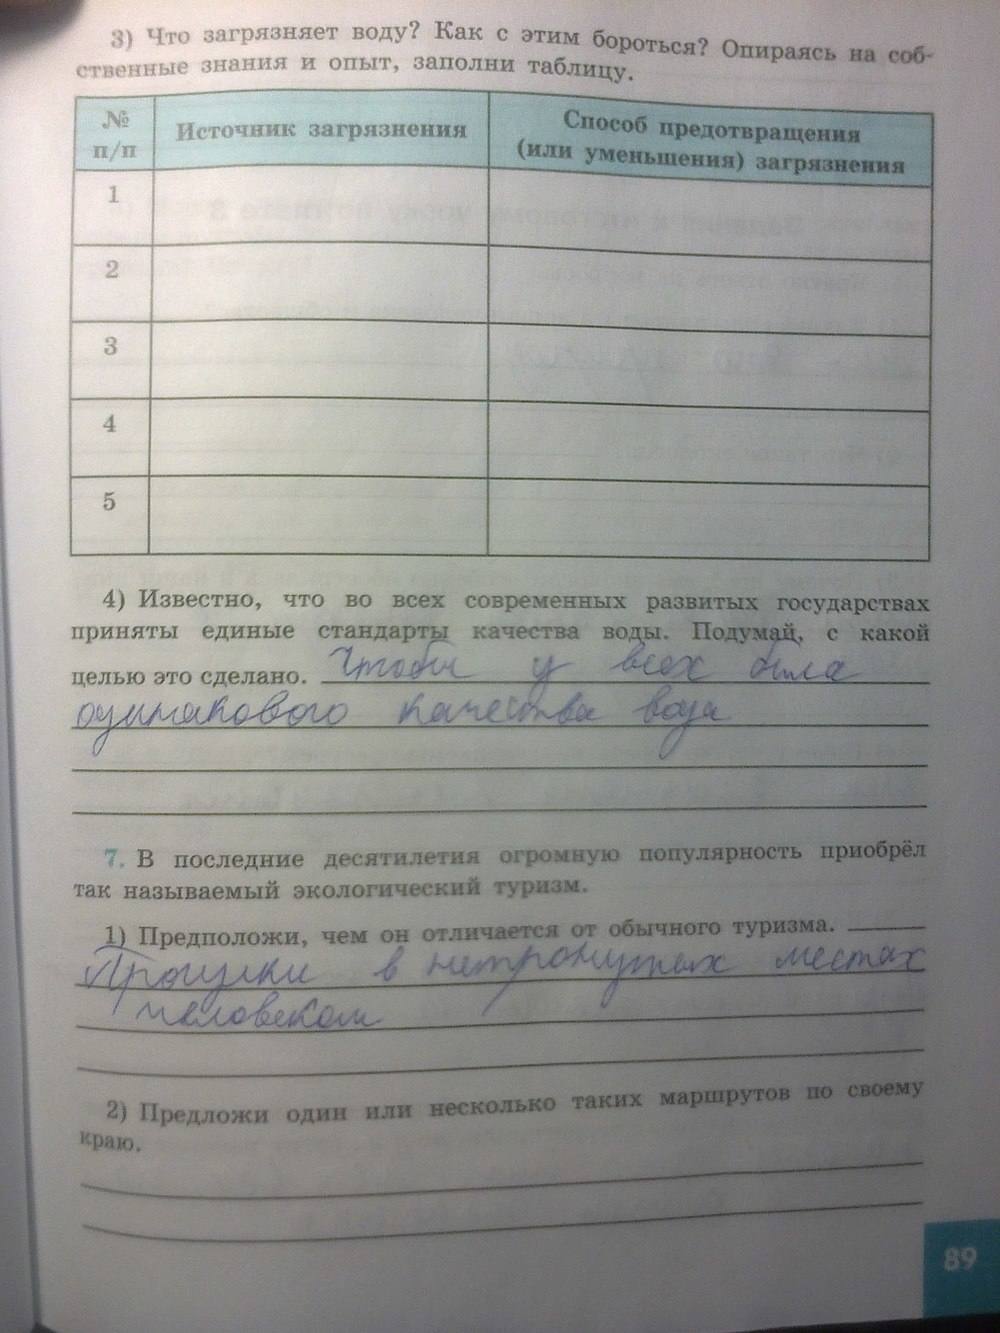 3) Что загрязняет воду? Как с этим бороться? Опираясь на соб-
ственные знания и опыт, заполни таблицу.
№ п/п Источник загрязнения Способ предотвращения (или уменьшения) загрязнения
1
2
3
4
5
4) Известно, что во всех современных развитых государствах
приняты единые стандарты качества воды. Подумай, с какой
целью это сделано. Чтобы у всех была
одинакового качества вода
7. В последние десятилетия огромную популярность приобрёл
так называемый экологический туризм.
1) Предположи, чем он отличается от обычного туризма.
Прогулки в нетронутых местах
человеком
2) Предложи один или несколько таких маршрутов по своему
краю.
89